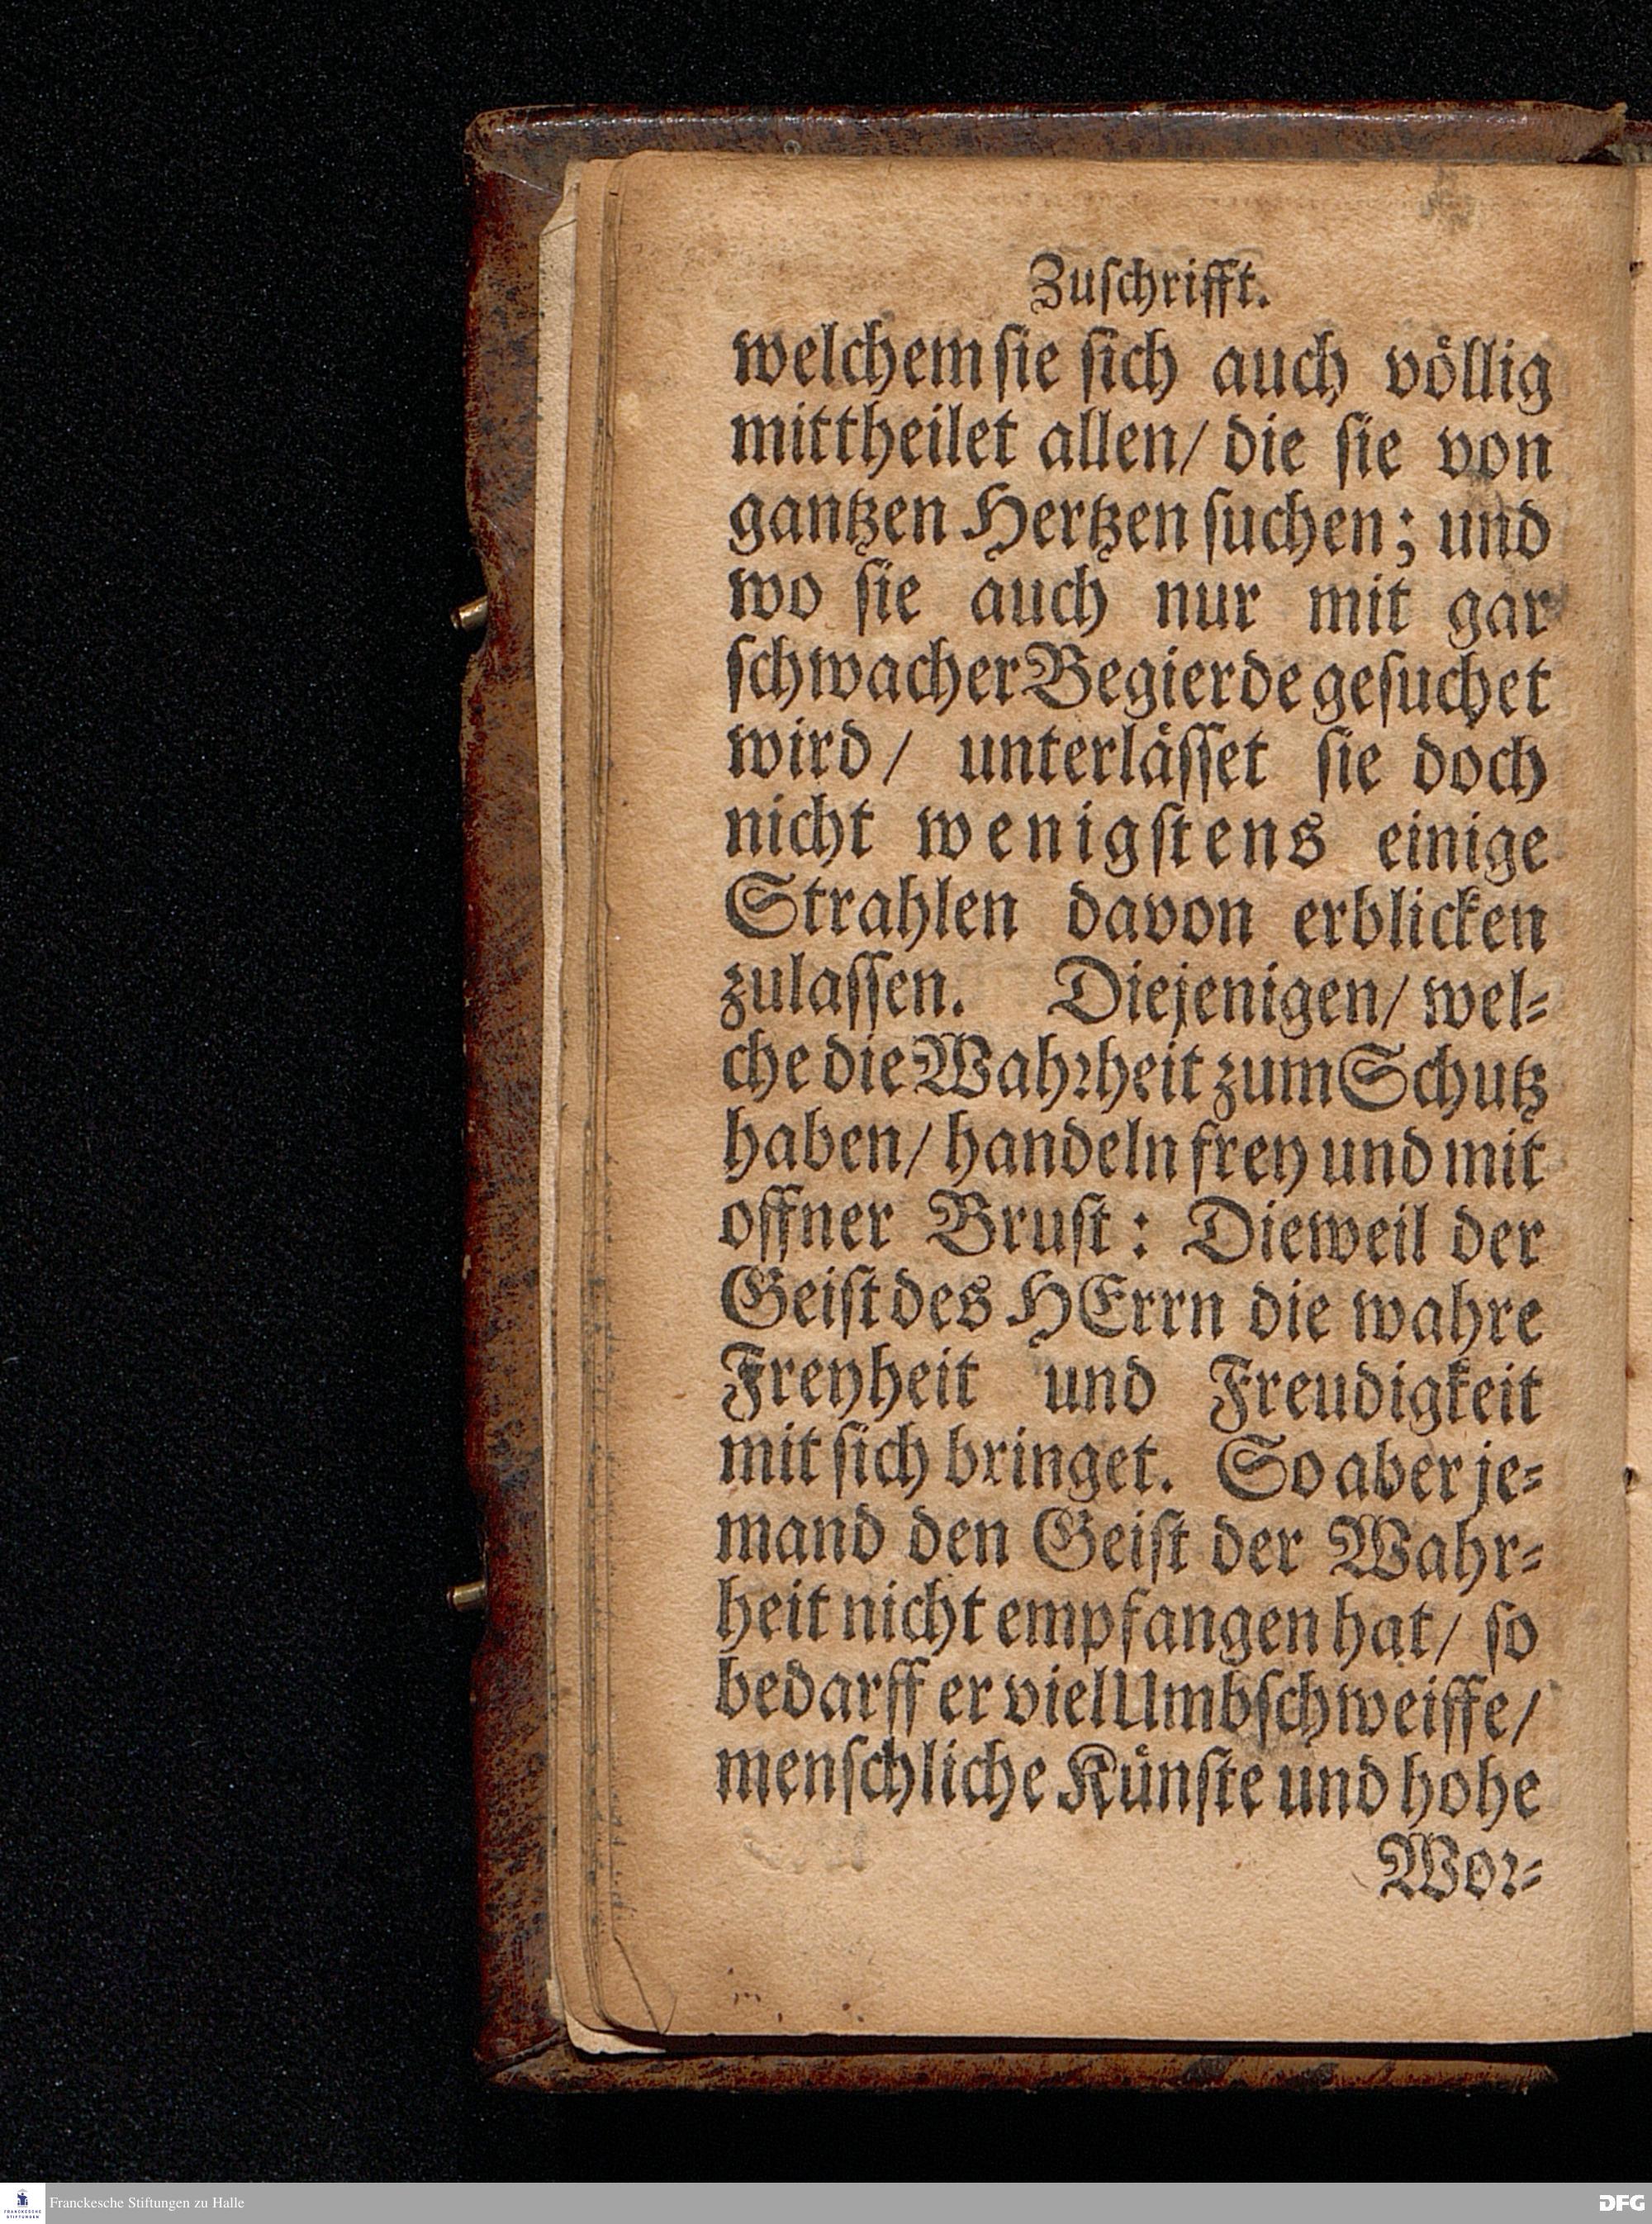 Zuſchrifft.
welchem ſie ſich auch völlig
mittheilet allen/ die ſie von
gantzen Hertzen ſuchen; und
wo ſie auch nur mit gar
ſchwacher Begierde geſuchet
wird/ unterläſſet ſie doch
nicht wenigſtens einige
Strahlen davon erblicken
zulaſſen. Diejenigen/ wel-
che die Wahꝛheit zum Schutz
haben/ handeln frey und mit
offner Bruſt: Dieweil der
Geiſt des HErrn die wahre
Freyheit und Freudigkeit
mit ſich bringet. So aber je-
mand den Geiſt der Wahr-
heit nicht empfangen hat/ ſo
bedarff er viel Umbſchweiffe/
menſchliche Künſte und hohe
Woꝛ-
FRANCKESCHE
STIFTUNGEN
Franckesche Stiftungen zu Halle
DFG